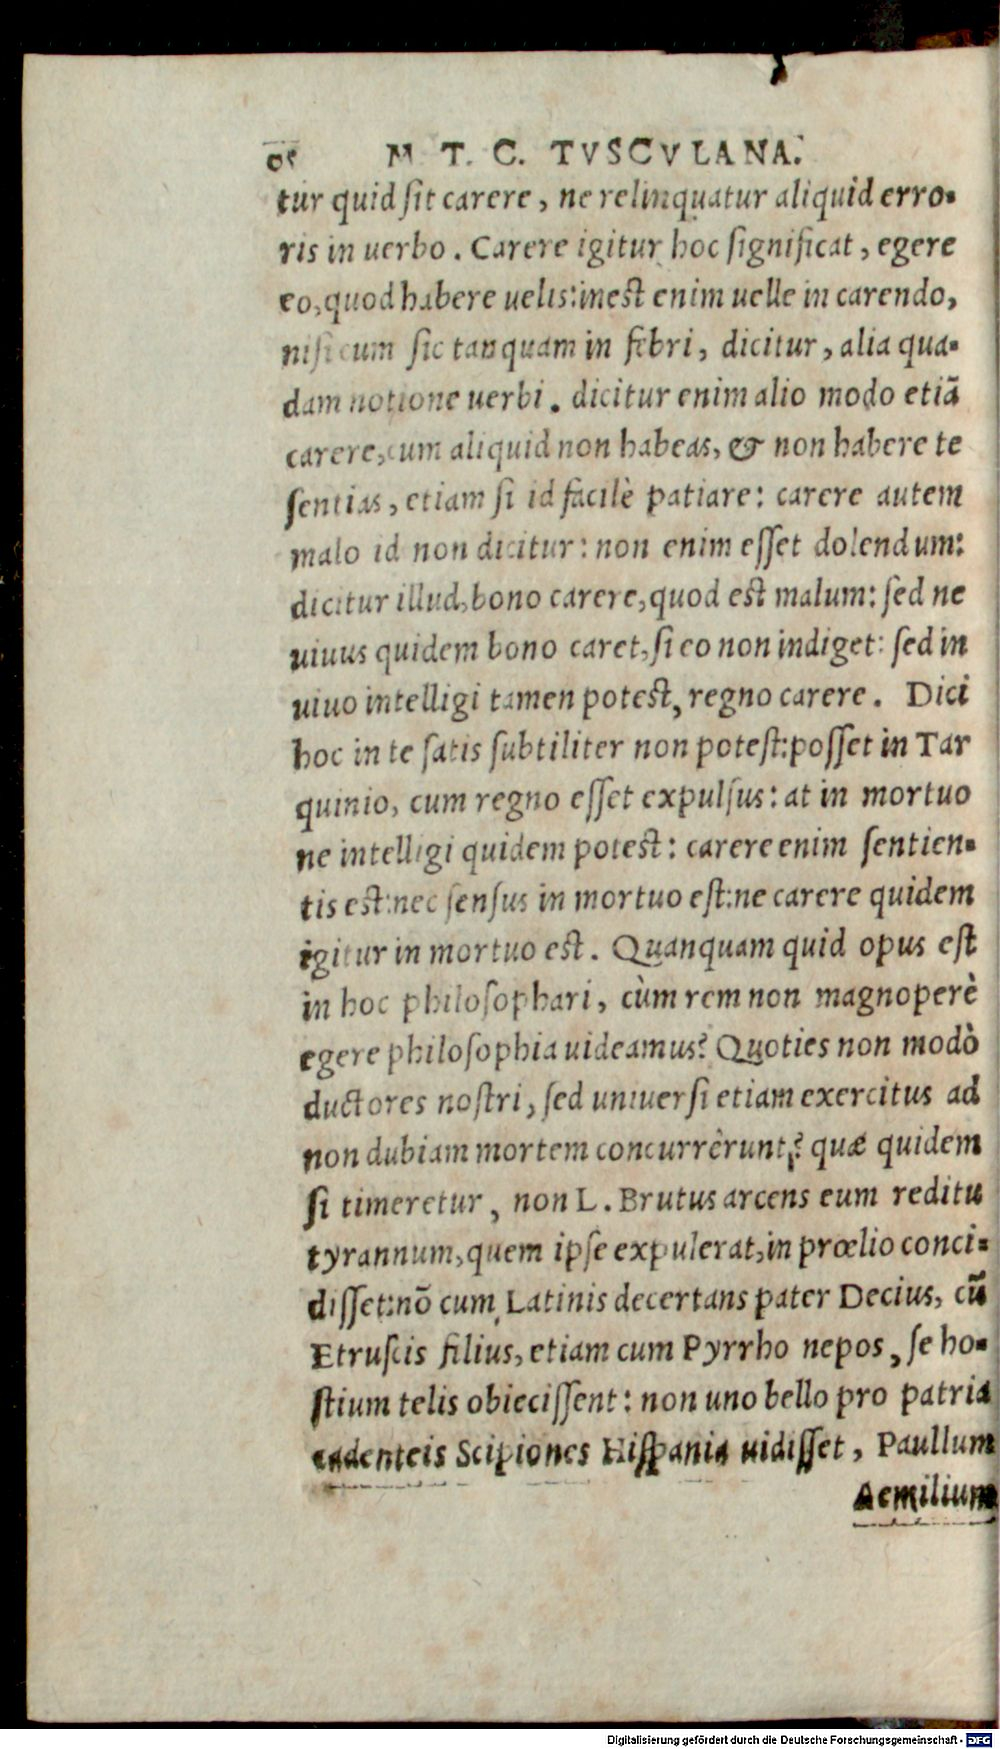 M T. C. TVSCVLANA.
tur quid sit carere, ne relinquatur aliquid erro-
ris in uerbo. Carere igitur hoc significat, egere
eo, quod habere uelis: inest enim uelle in carendo,
nisi cum sic tanquam in febri, dicitur, alia qua-
dam notione uerbi. dicitur enim alio modo etiã
carere, cum aliquid non habeas, & non habere te
sentias, etiam si id facilè patiare: carere autem
malo id non dicitur: non enim esset dolendum:
dicitur illud, bono carere, quod est malum: sed ne
uiuus quidem bono caret, si eo non indiget: sed in
uiuo intelligi tamen potest, regno carere. Dici
hoc in te satis subtiliter non potest: posset in Tar
quinio, cum regno esset expulsus: at in mortuo
ne intelligi quidem potest: carere enim sentien-
tis est: nec sensus in mortuo est: ne carere quidem
igitur in mortuo est. Quanquam quid opus est
in hoc philosophari, cùm rem non magnoperè
egere philosophia uideamus? Quoties non modò
ductores nostri, sed uniuersi etiam exercitus ad
non dubiam mortem concurrêrunt? quæ quidem
si timeretur, non L. Brutus arcens eum reditu
tyrannum, quem ipse expulerat, in prœlio conci-
disset: nõ cum Latinis decertans pater Decius, cũ
Etruscis filius, etiam cum Pyrrho nepos, se ho-
stium telis obiecissent: non uno bello pro patria
cadenteis Scipiones Hispania uidisset, Paullum
Aemilium
Digitalisierung gefördert durch die Deutsche Forschungsgemeinschaft - DFG